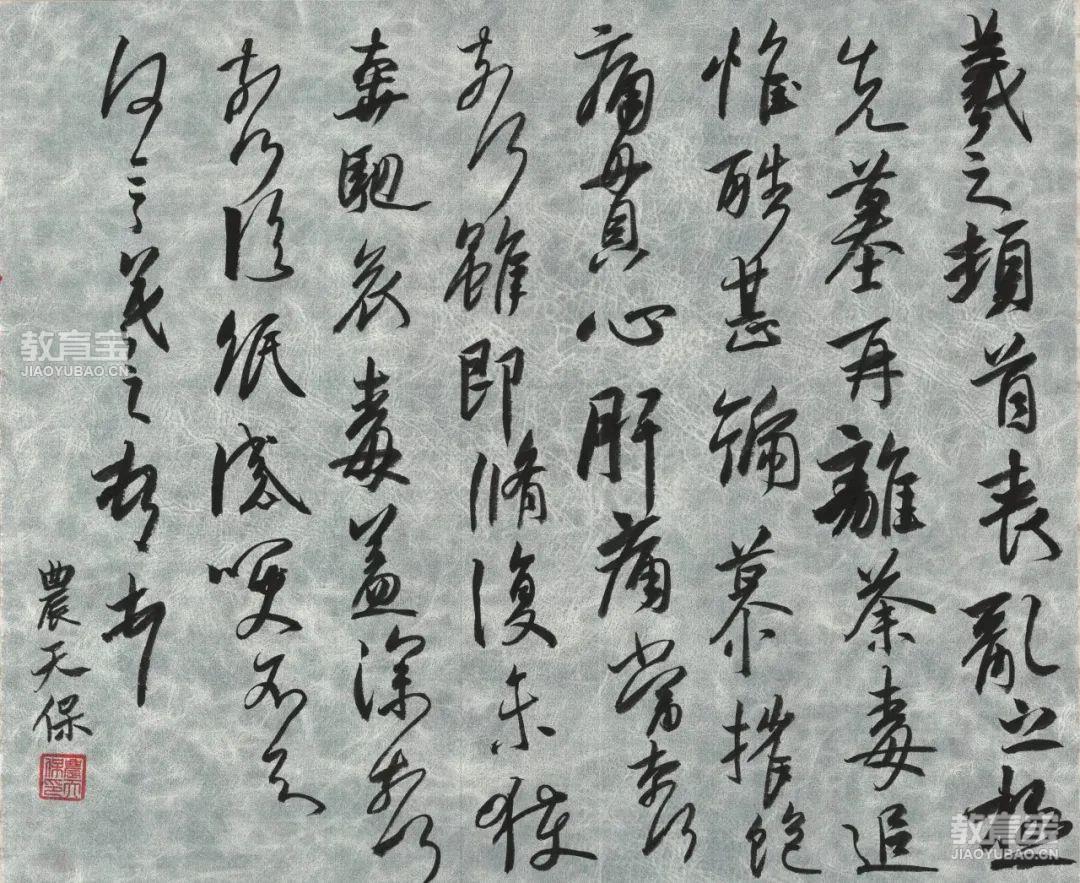 羲之頓首喪亂之極
先墓再離荼毒追
惟酷甚號慕摧絶
痛貫心肝痛當奈何
奈何雖即脩復未獲
奔馳哀毒益深奈何
奈何臨紙感哽不知
何言羲之頓首
農天保
農天保印
教育宝
JIAOYUBAO.CN
教育宝
JIAOYUBAO.CN